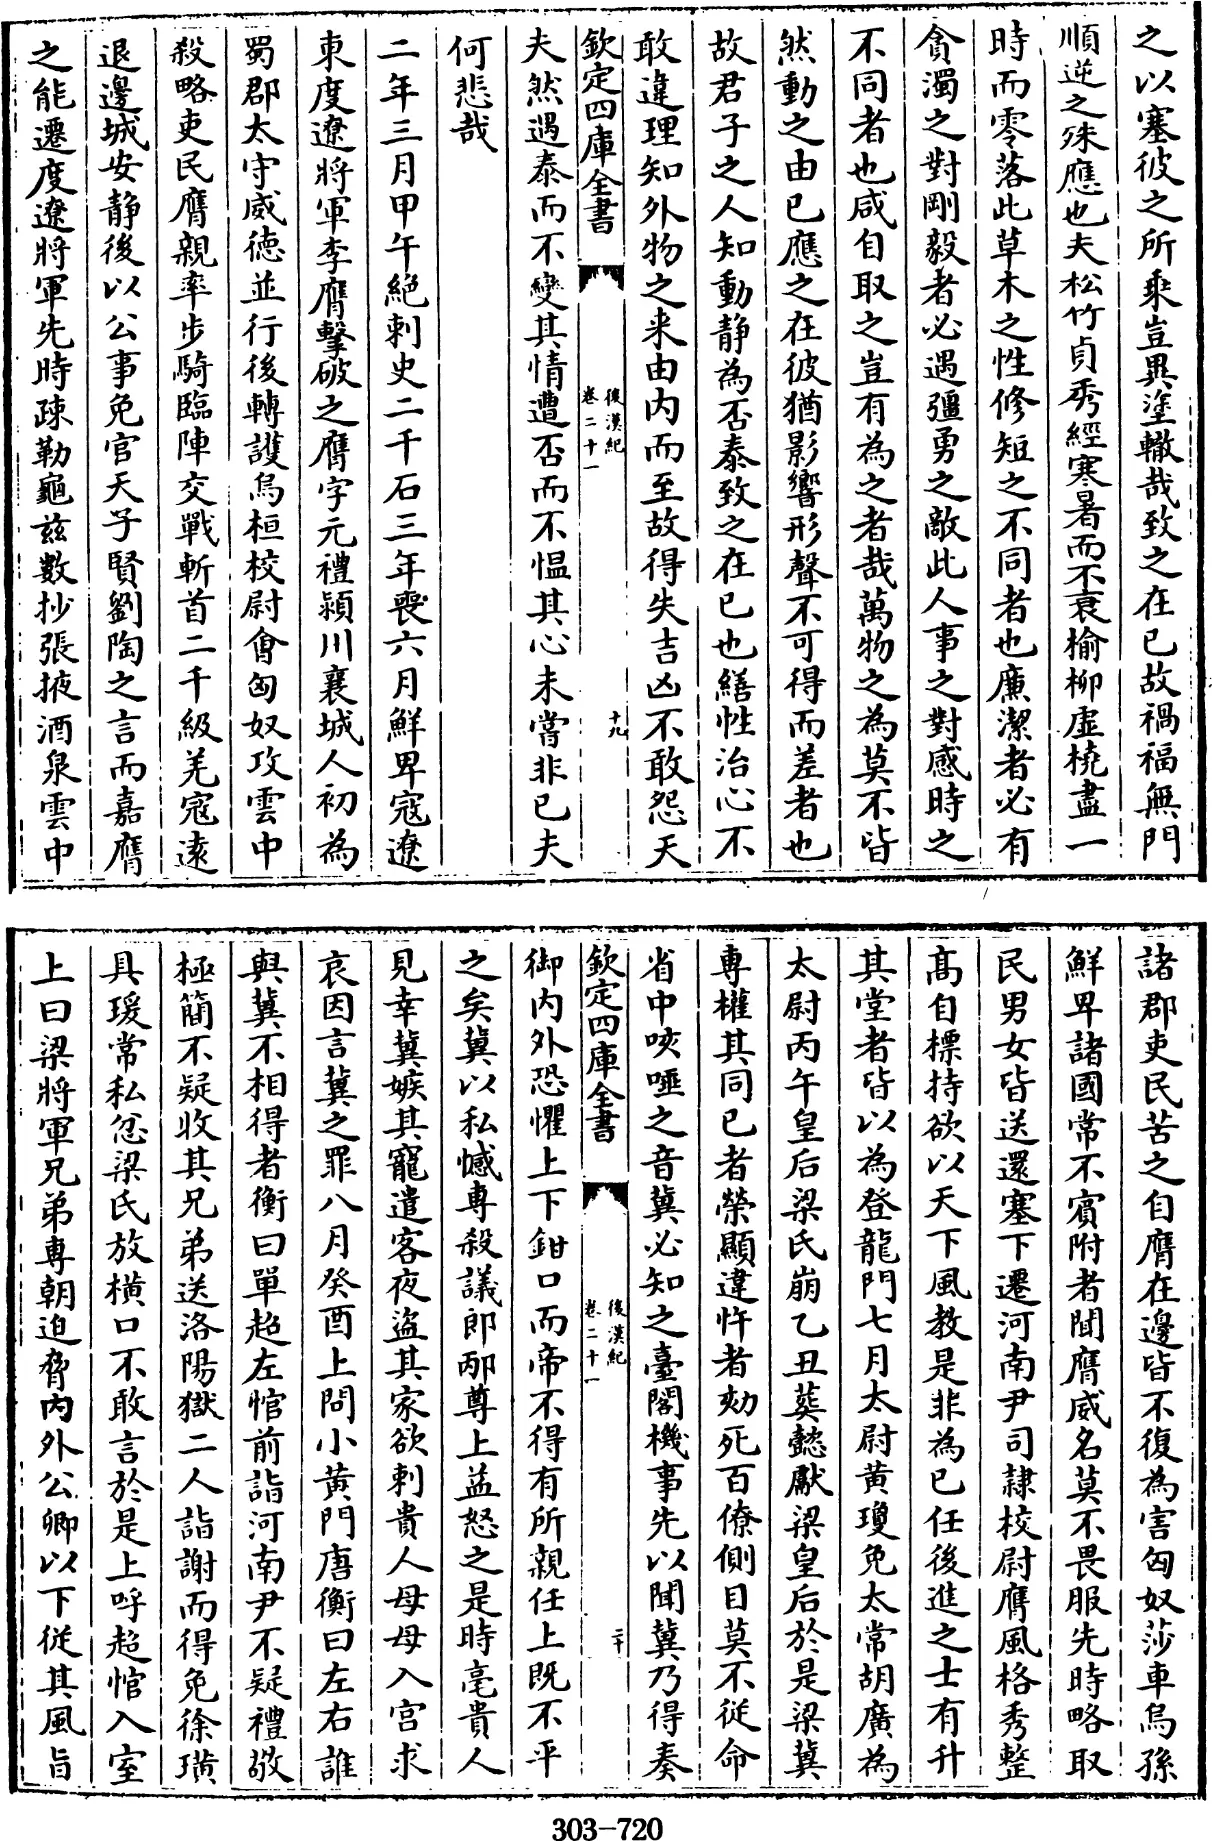 之以塞彼之所乘豈異塗轍哉致之在已故禍福無門
順逆之殊應也夫松竹貞秀經寒暑而不衰榆柳虛橈盡一
時而零落此草木之性修短之不同者也廉潔者必有
貪濁之對剛毅者必遇彊勇之敵此人事之對感時之
不同者也咸自取之豈有為之者哉萬物之為莫不皆
然動之由已應之在彼猶影響形聲不可得而差者也
故君子之人知動靜為否泰致之在已也繕性治心不
敢違理知外物之来由内而至故得失吉凶不敢怨天
欽定四庫全書
後漢紀
卷二十一
十九
夫然遇泰而不變其情遭否而不愠其心未嘗非已夫
何悲哉
二年三月甲午絶刺史二千石三年喪六月鮮卑寇遼
東度遼將軍李膺擊破之膺字元禮潁川襄城人初為
蜀郡太守威德並行後轉護烏桓校尉會匈奴攻雲中
殺略吏民膺親率步騎臨陣交戰斬首二千級羌寇逺
退邊城安静後以公事免官天子賢劉陶之言而嘉膺
之能遷度遼將軍先時疎勒龜兹數抄張掖酒泉雲中
諸郡吏民苦之自膺在邊皆不復為害匈奴莎車烏孫
鮮卑諸國常不賓附者聞膺威名莫不畏服先時略取
民男女皆送還塞下遷河南尹司隷校尉膺風格秀整
髙自標持欲以天下風教是非為已任後進之士有升
其堂者皆以為登龍門七月太尉黄瓊免太常胡廣為
太尉丙午皇后梁氏崩乙丑葬懿獻梁皇后於是梁冀
専權其同已者榮顯違忤者劾死百僚側目莫不從命
省中咳唾之音冀必知之臺閣機事先以聞冀乃得奏
欽定四庫全書
後漢紀
卷二十一
二十
御内外恐懼上下鉗口而帝不得有所親任上既不平
之矣冀以私憾専殺議郎邴尊上益怒之是時亳貴人
見幸冀嫉其寵遣客夜盗其家欲刺貴人母母入宫求
哀因言冀之罪八月癸酉上問小黄門唐衡曰左右誰
與冀不相得者衡曰單超左悺前詣河南尹不疑禮敬
極簡不疑收其兄弟送洛陽獄二人詣謝而得免徐璜
具瑗常私忿梁氏放横口不敢言於是上呼超悺入室
上曰梁將軍兄弟専朝迫脅内外公卿以下從其風旨
303-720